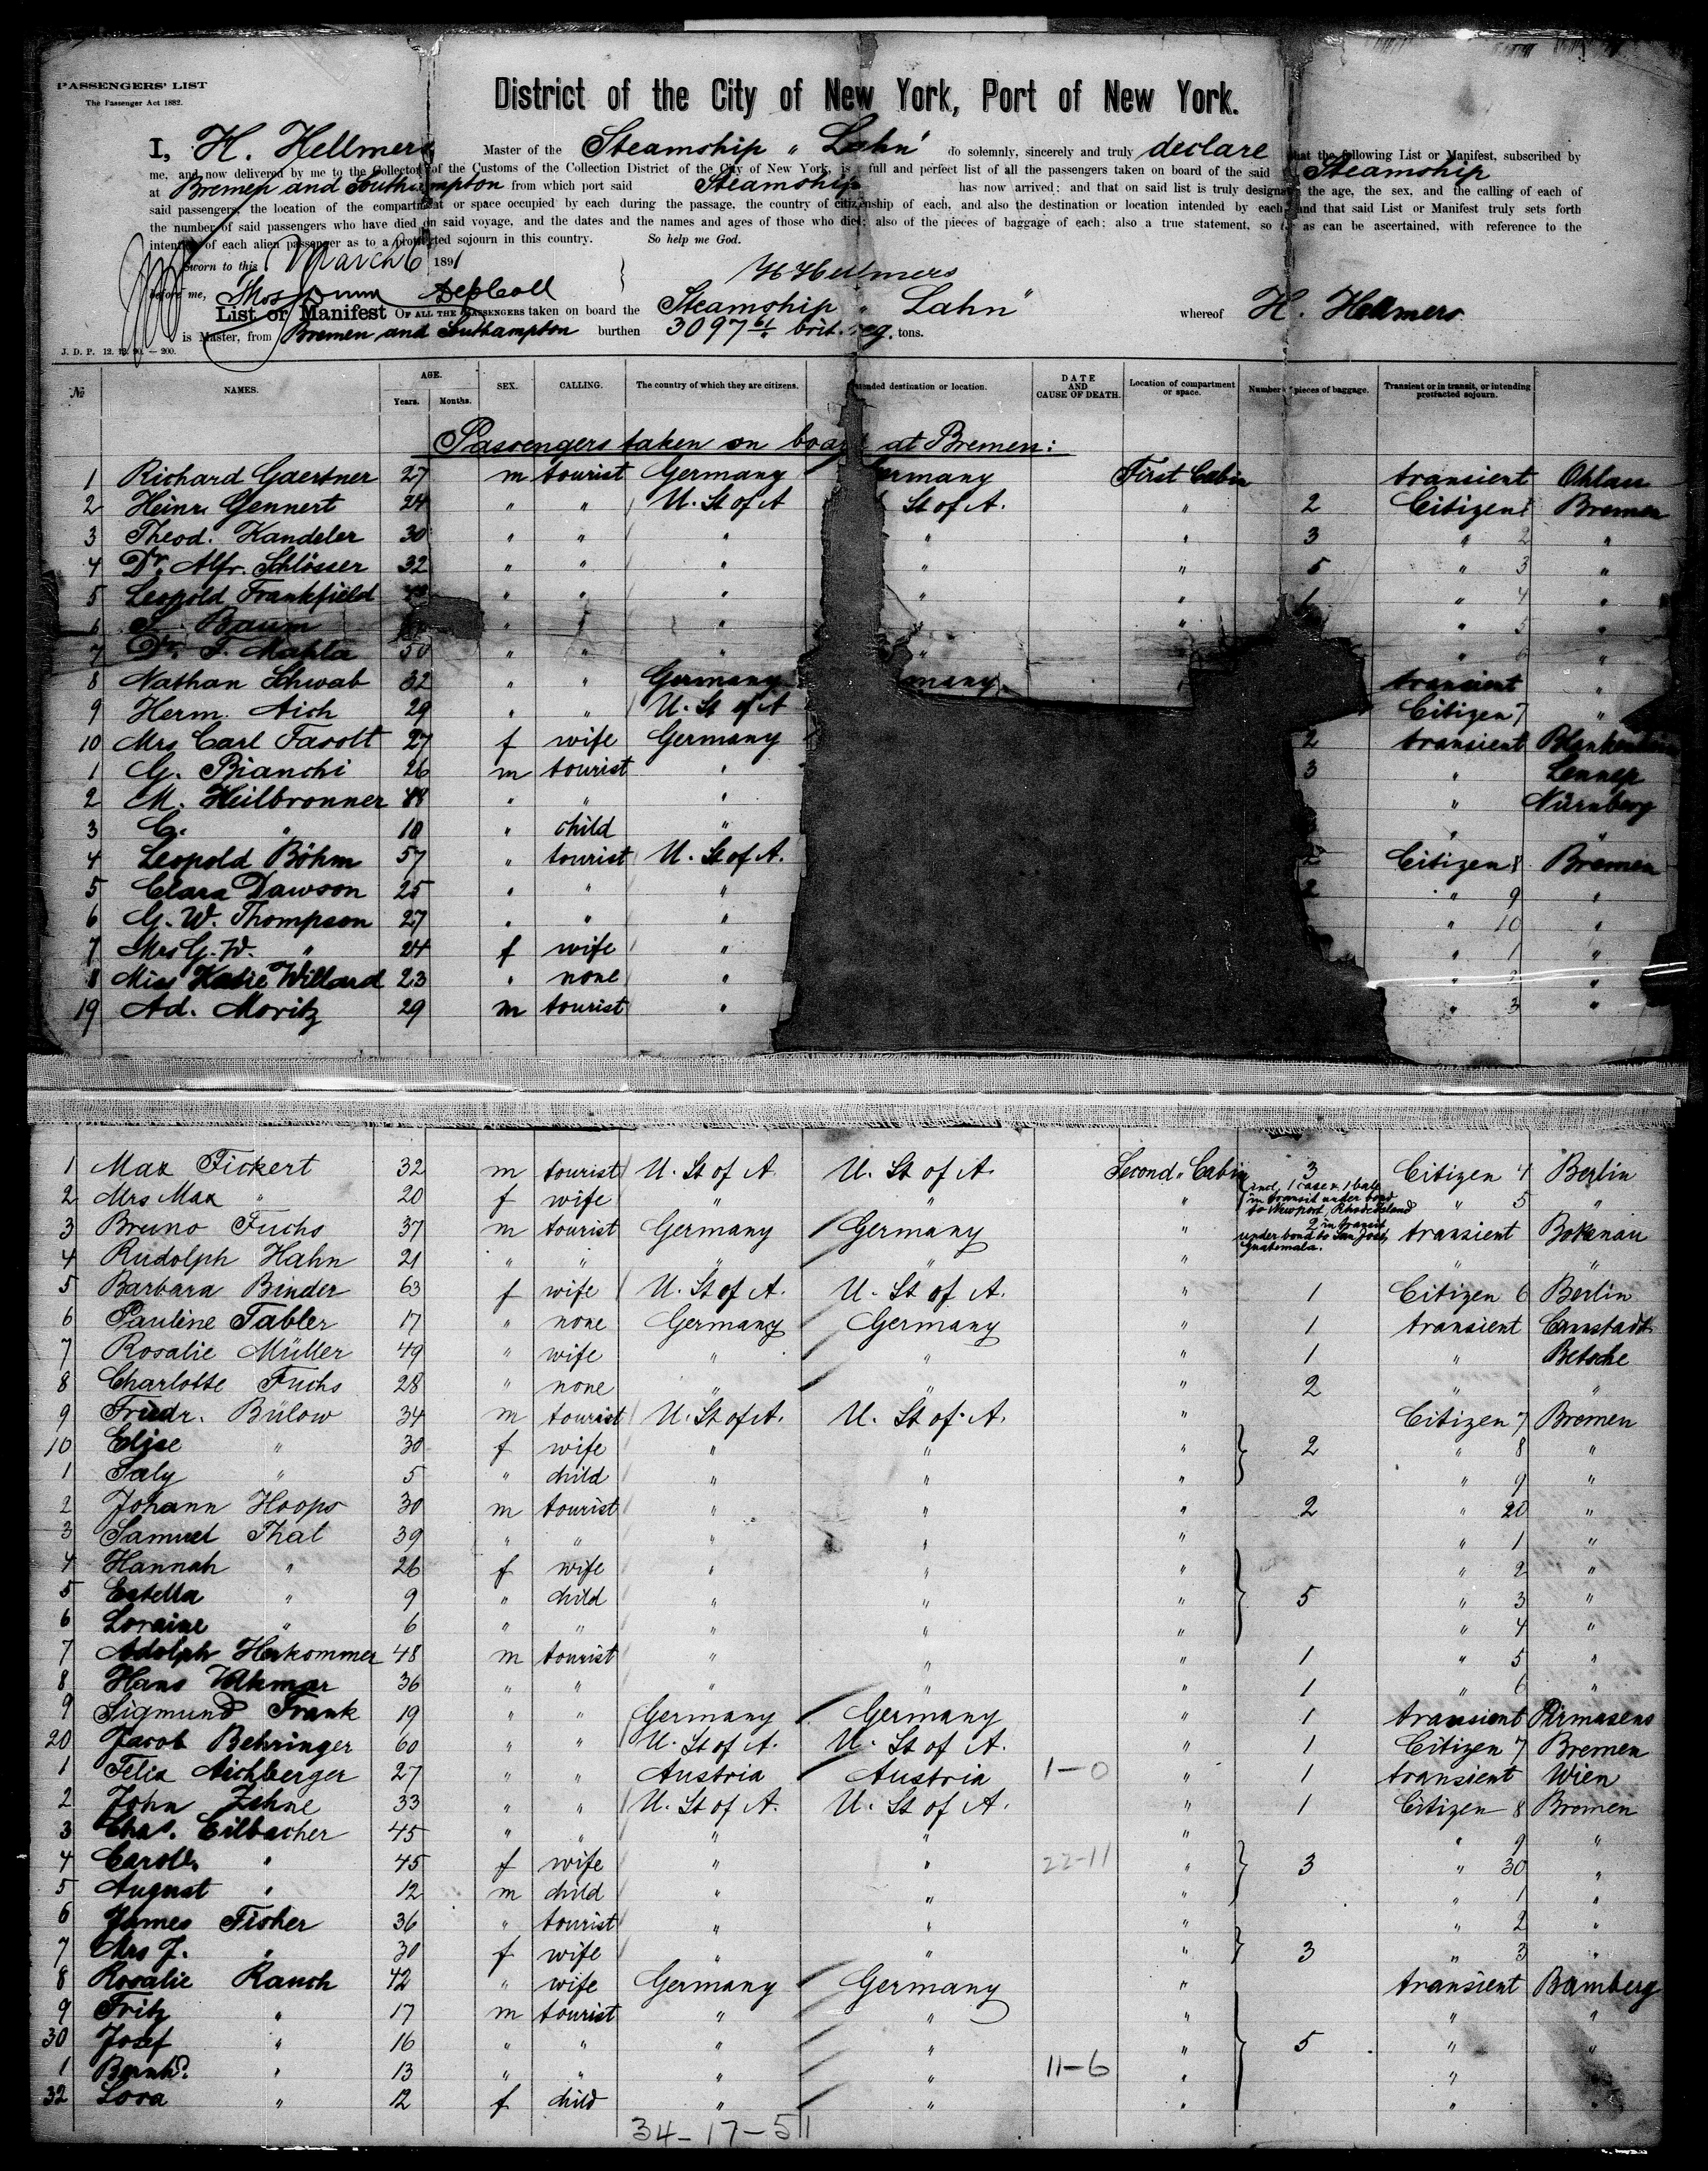 PASSENGERS' LIST
The Passenger Act 1882.
District of the City of New York, Port of New York.
I, H. Hellmers Master of the Steamship „ Lahn" do solemnly, sincerely and truly declare that the following List or Manifest, subscribed by
me, and now delivered by me to the Collector of the Customs of the Collection District of the City of New York, is a full and perfect list of all the passengers taken on board of the said Steamship
at Bremen and Southampton from which port said Steamship has now arrived: and that on said list is truly designated the age, the sex, and the calling of each of
said passengers, the location of the compartment or space occupied by each during the passage, the country of citizenship of each, and also the destination or location intended by each and that said List or Manifest truly sets forth
the number of said passengers who have died on said voyage, and the dates and the names and ages of those who died; also of the pieces of baggage of each; also a true statement, so far as can be ascertained, with reference to the
intention of each alien passenger as to a protracted sojourn in this country. So help me God.
Sworn to this March 6 1891
H Hellmers
before me, Thos Dunn Dep Coll
List or Manifest OF ALL THE PASSENGERS taken on board the Steamship „ Lahn" whereof H. Hellmers
is Master, from Bremen and Southampton burthen 3097 61 brit. reg. tons.
J. D. P. 12. 12. 90. — 200.
№ NAMES. AGE. Years. Months. SEX. CALLING. The country of which they are citizens. Intended destination or location. DATE AND CAUSE OF DEATH. Location of compartment or space. Number pieces of baggage. Transient or in transit, or intending protracted sojourn.
Passengers taken on board at Bremen:
1 Richard Gaertner 27 m tourist Germany ermany First Cabin transient Ohlau
2 Heinr. Gennert 24 " " U. St of A St of A. " 2 Citizen 1 Bremen
3 Theod. Kandeler 30 " " " " " 3 " 2 "
4 Dr. Alfr. Schlösser 32 " " " " " 5 " 3 "
5 Leopold Frankfield " " " " " " 4 "
6 Baum " " " " " 5 "
7 Dr. F. Mahla 50 " " " " " 6 "
8 Nathan Schwab 32 " " Germany many transient "
9 Herm. Aich 29 " " U. St of A Citizen 7 "
10 Mrs Carl Fasolt 27 f wife Germany 2 transient
1 G. Bianchi 26 m tourist " 3 " Lennep
2 M. Heilbronner 48 " " " " Nürnberg
3 C. " 10 " child " " "
4 Leopold Böhm 57 " tourist U. St of A. 2 Citizen 8 Bremen
5 Clara Dawson 25 " " " 2 " 9 "
6 G. W. Thompson 27 " " " " 10 "
7 Mrs G. W. " 24 f wife " " 1 "
8 Miss Katie Willard 23 " none " " 2 "
19 Ad. Moritz 29 m tourist " " 3 "
1 Max Fickert 32 m tourist U. St of A. U. St of A. Second Cabin 3 Citizen 4 Berlin
2 Mrs Max " 20 f wife " " " incl. 1 case & 1 bale in transit under bond to Newport, Rhode Island " 5 "
3 Bruno Fuchs 37 m tourist Germany Germany " 2 in transit under bond to San José, Guatemala. transient Bokenau
4 Rudolph Hahn 21 " " " " " " "
5 Barbara Binder 63 f wife U. St of A. U. St of A. " 1 Citizen 6 Berlin
6 Pauline Tabler 17 " none Germany Germany " 1 transient Cannstadt
7 Rosalie Müller 49 " wife " " " 1 " Betsche
8 Charlotte Fuchs 28 " none " " " 2 " "
9 Friedr. Bülow 34 m tourist U. St of A. U. St of A. " Citizen 7 Bremen
10 Elise " 30 f wife " " " 2 " 8 "
1 Saly " 5 " child " " " " 9 "
2 Johann Hoops 30 m tourist " " " 2 " 20 "
3 Samuel Thal 39 " " " " " " 1 "
4 Hannah " 26 f wife " " " " 2 "
5 Estella " 9 " child " " " 5 " 3 "
6 Loraine " 6 " " " " " " 4 "
7 Adolph Herkommer 48 m tourist " " " 1 " 5 "
8 Hans Volkmar 36 " " " " " 1 " 6 "
9 Sigmund Frank 19 " " Germany Germany " 1 transient Pirmasens
20 Jacob Behringer 60 " " U. St of A. U. St of A. " 1 Citizen 7 Bremen
1 Felix Aichberger 27 " " Austria Austria 1-0 " 1 transient Wien
2 John Zehne 33 " " U. St of A. U. St of A. " 1 Citizen 8 Bremen
3 Chas. Eilbacher 45 " " " " " " 9 "
4 Carol. " 45 f wife " " 22-11 " 3 " 30 "
5 August " 12 m child " " " " 1 "
6 James Fisher 36 " tourist " " " " 2 "
7 Mrs J. " 30 f wife " " " 3 " 3 "
8 Rosalie Rauch 42 " wife Germany Germany " transient Bamberg
9 Fritz " 17 m tourist " " " " "
30 Josef " 16 " " " " " 5 " "
1 Bernhd. " 13 " " " " 11-6 " "
32 Lora " 12 f child " " " " "
34-17-511